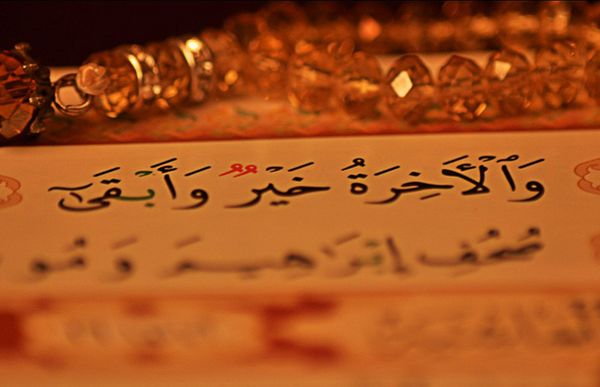 وَٱلْأَخِرَةُ خَيْرٌ وَأَبْقَىٰٓ
صُحُفِ إِبْرَٰهِيمَ وَمُو